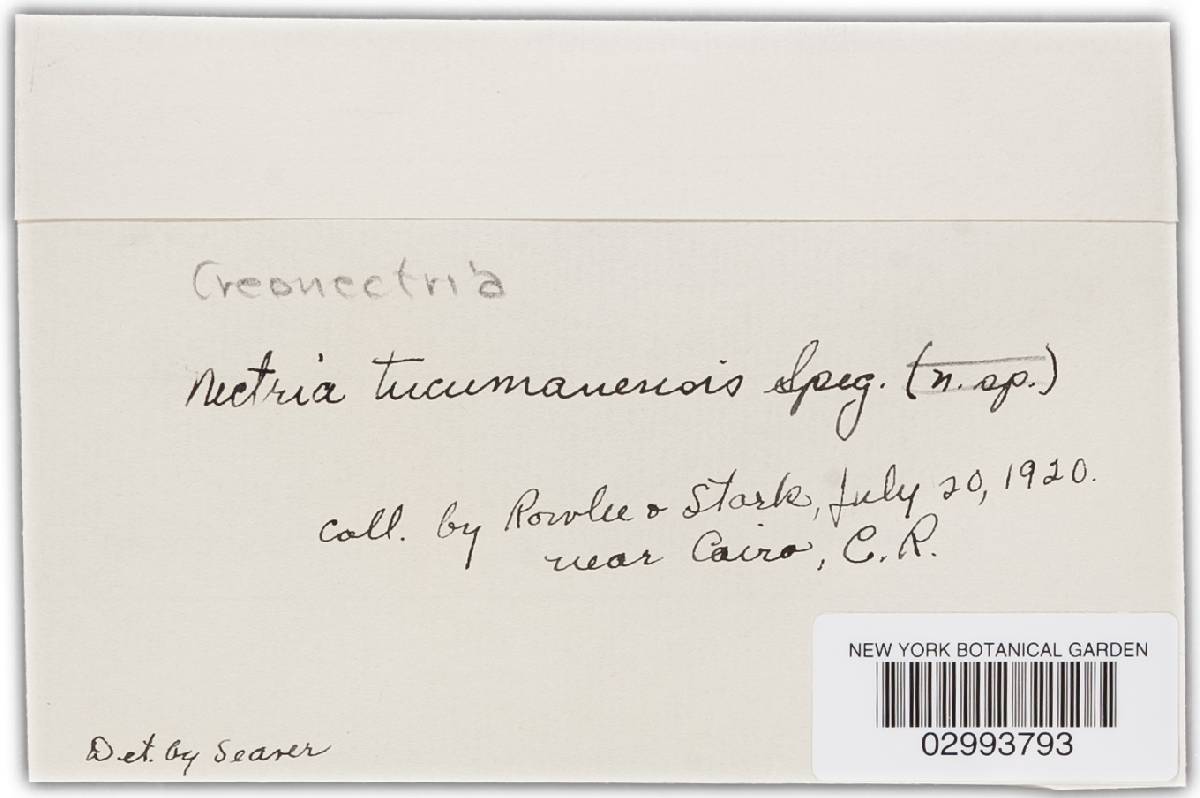 Creonectria
Nectria tucumanensis Speg. (n. sp.)
Coll. by Rowlee & Stork, July 20, 1920.
near Cairo, C.R.
NEW YORK BOTANICAL GARDEN
02993793
Det. by Seaver